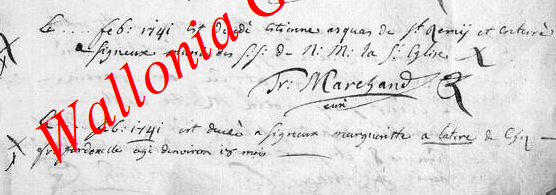 Le ... feb: 1741 est decedé etienne asquas de St Remij et enterré
a signeux muni des S:S: de N: M: la Ste Eglise
Fr: Marchand
curé
Le ... feb: 1741 est decedé a signeux margueritte a latere de
agé denviron 18 mois
Wallonia